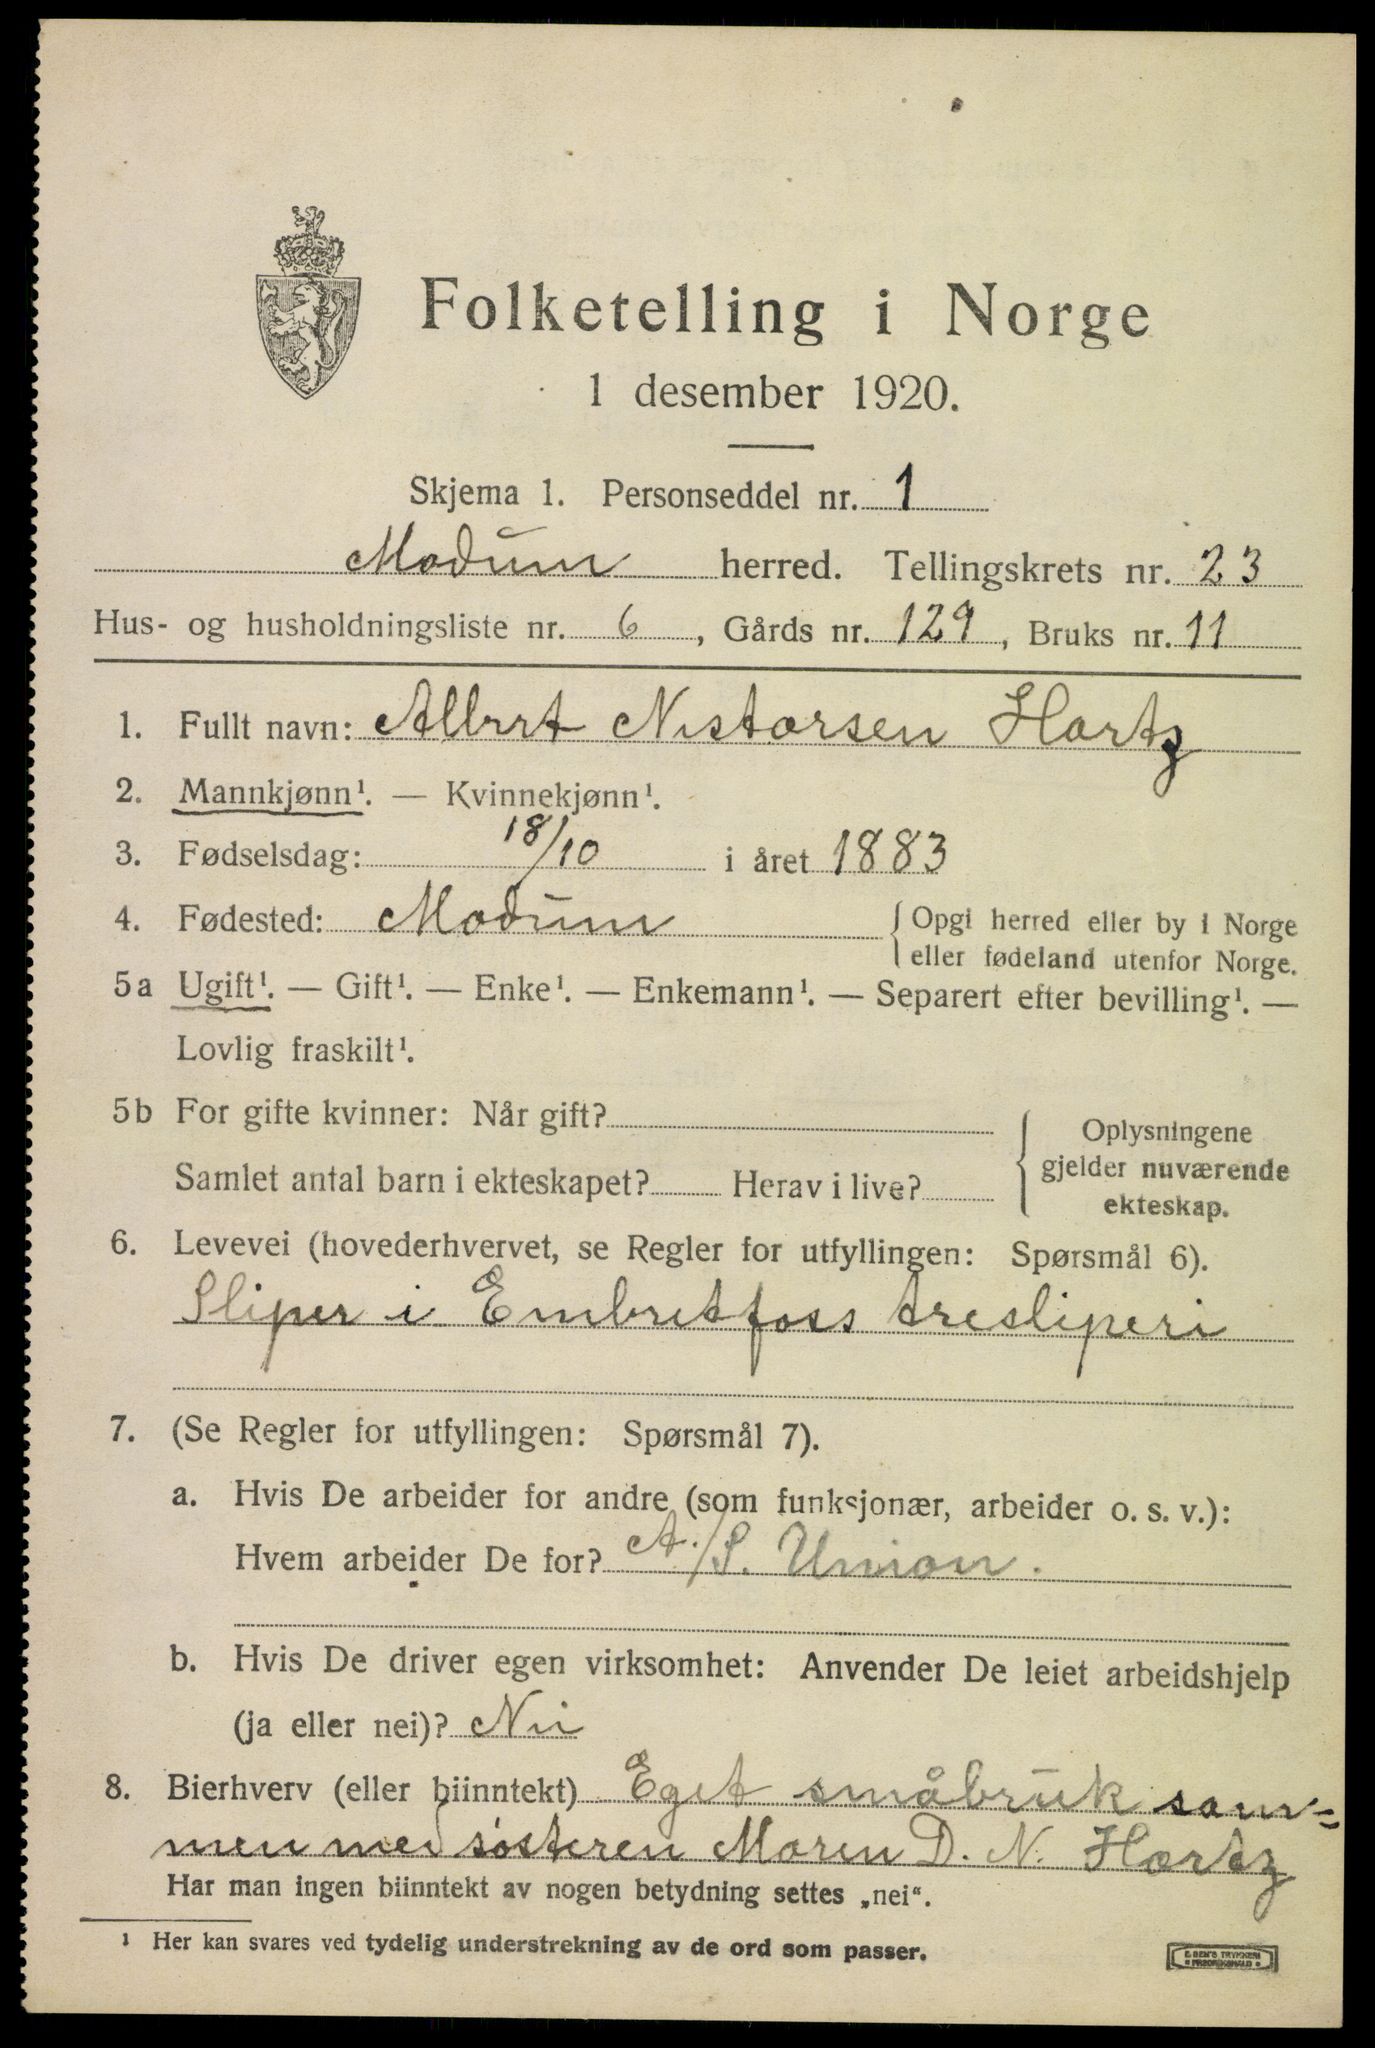 Folketelling i Norge
1 desember 1920.
Skjema 1. Personseddel nr. 1
Modum herred. Tellingskrets nr. 23
Hus- og husholdningsliste nr. 6, Gårds nr. 129, Bruks nr. 11
1. Fullt navn: Albert Nestorsen Hartz
2. Mannkjønn¹. — Kvinnekjønn¹.
3. Fødselsdag: 18/10 i året 1883
4. Fødested: Modum { Opgi herred eller by i Norge
eller fødeland utenfor Norge.
5a Ugift¹. — Gift¹. — Enke¹. — Enkemann¹. — Separert efter bevilling¹. —
Lovlig fraskilt¹.
5b For gifte kvinner: Når gift?
Samlet antal barn i ekteskapet? Herav i live?
{ Oplysningene
gjelder nuværende
ekteskap.
6. Levevei (hovederhvervet, se Regler for utfyllingen: Spørsmål 6).
Sliper i Embretfoss tresliperi
7. (Se Regler for utfyllingen: Spørsmål 7).
a. Hvis De arbeider for andre (som funksjonær, arbeider o. s. v.):
Hvem arbeider De for? A./S. Union.
b. Hvis De driver egen virksomhet: Anvender De leiet arbeidshjelp
(ja eller nei)? Nei
8. Bierhverv (eller biinntekt) Eget småbruk sam=
men med søsteren Maren D. N. Hartz
Har man ingen biinntekt av nogen betydning settes „nei“.
¹ Her kan svares ved tydelig understrekning av de ord som passer.